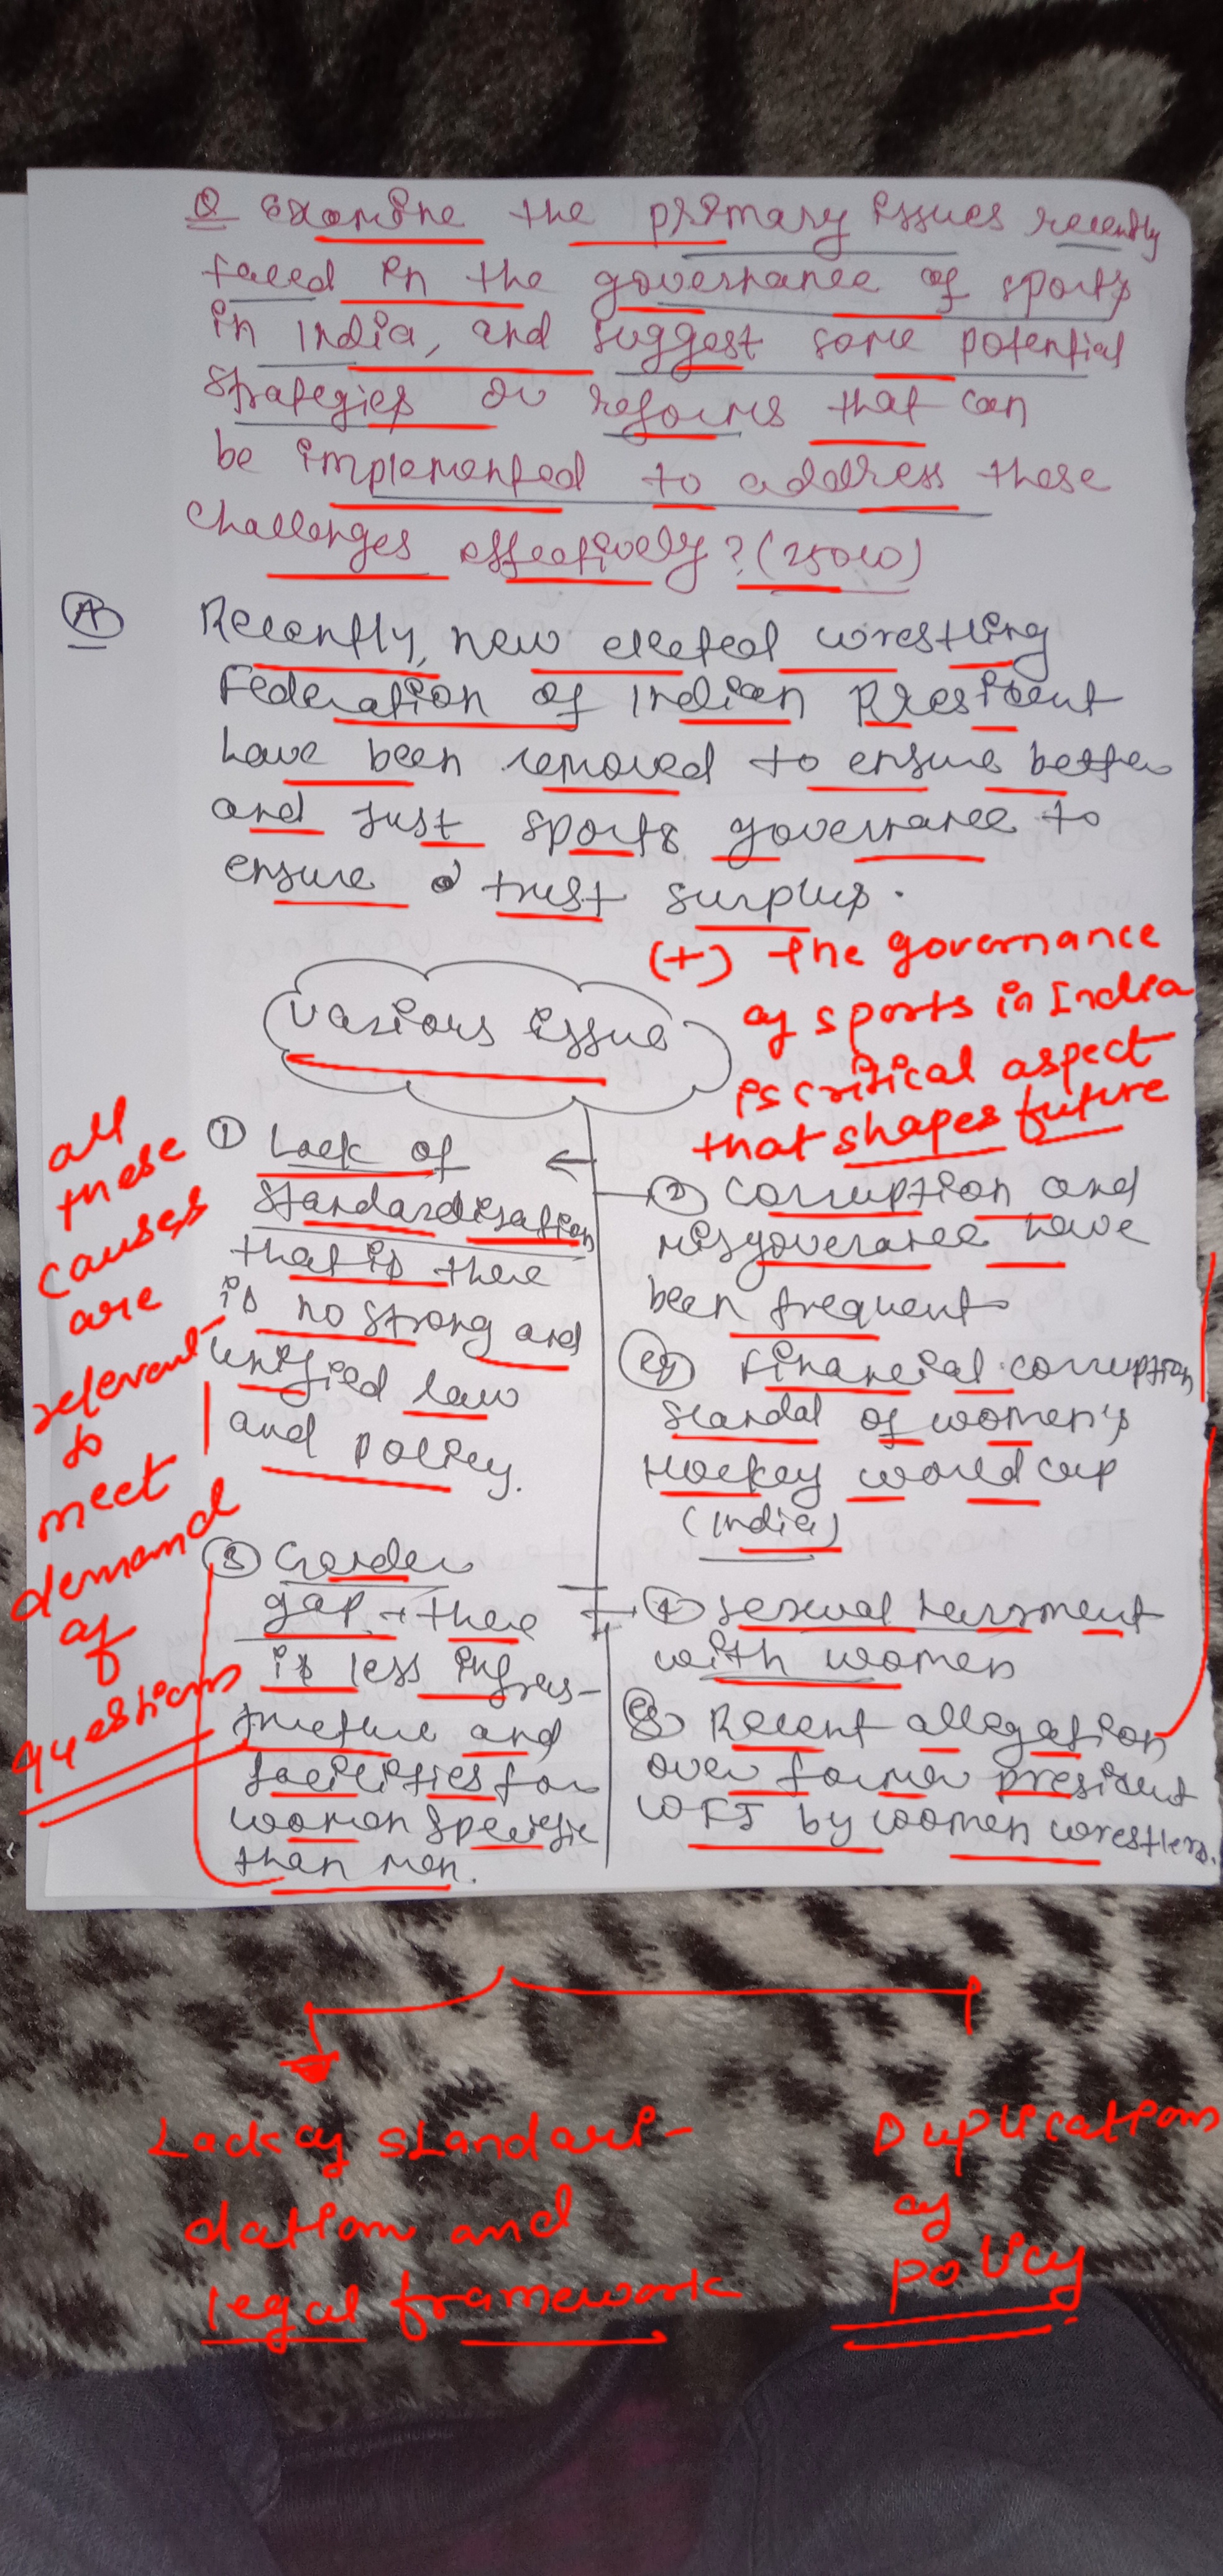 Q Examine the primary issues recently
faced in the governance of sports
in India, and suggest some potential
strategies or reforms that can
be implemented to address these
challenges effectively? (250w)
(A) Recently, new elected wrestling
Federation of Indian President
have been removed to ensure better
and just sports governance to
ensure trust surplus.
(+) The governance
of sports in India
is critical aspect
that shapes future
Various issue
① Lack of
standardisation
that is there
is no strong and
unified law
and policy.
② Corruption and
misgoverance have
been frequent
eg Financial corruption
scandal of women's
Hockey world cup
(India)
③ Gender
gap → there
is less infras-
tructure and
facilities for
women specific
than men.
④ sexual harrsment
with women
eg Recent allegation
over former president
WFI by women wrestlers.
all
these
causes
are
relevant
to
meet
demand
of
questions
Lack of standari-
dation and
legal framework
Duplications
of
policy